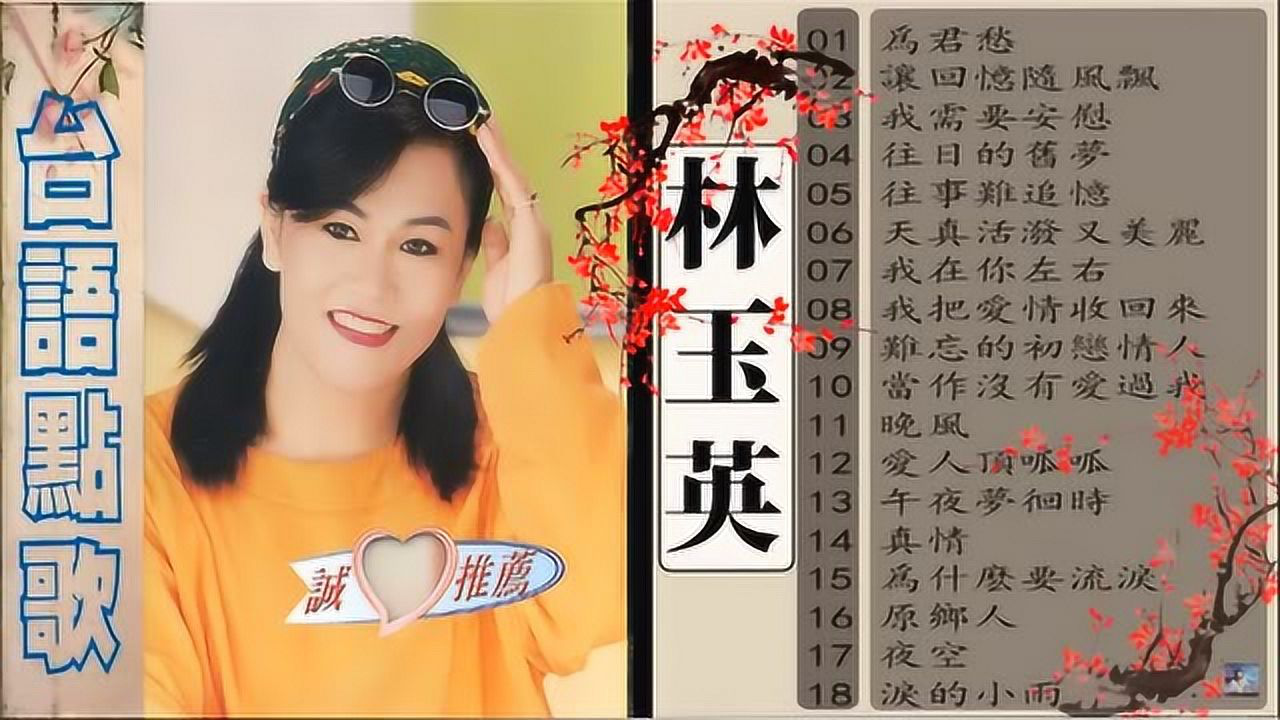 台語點歌
誠 推薦
林玉英
01 為君愁
02 讓回憶隨風飄
03 我需要安慰
04 往日的舊夢
05 往事難追憶
06 天真活潑又美麗
07 我在你左右
08 我把愛情收回來
09 難忘的初戀情人
10 當作沒有愛過我
11 晚風
12 愛人頂呱呱
13 午夜夢徊時
14 真情
15 為什麼要流淚
16 原鄉人
17 夜空
18 淚的小雨